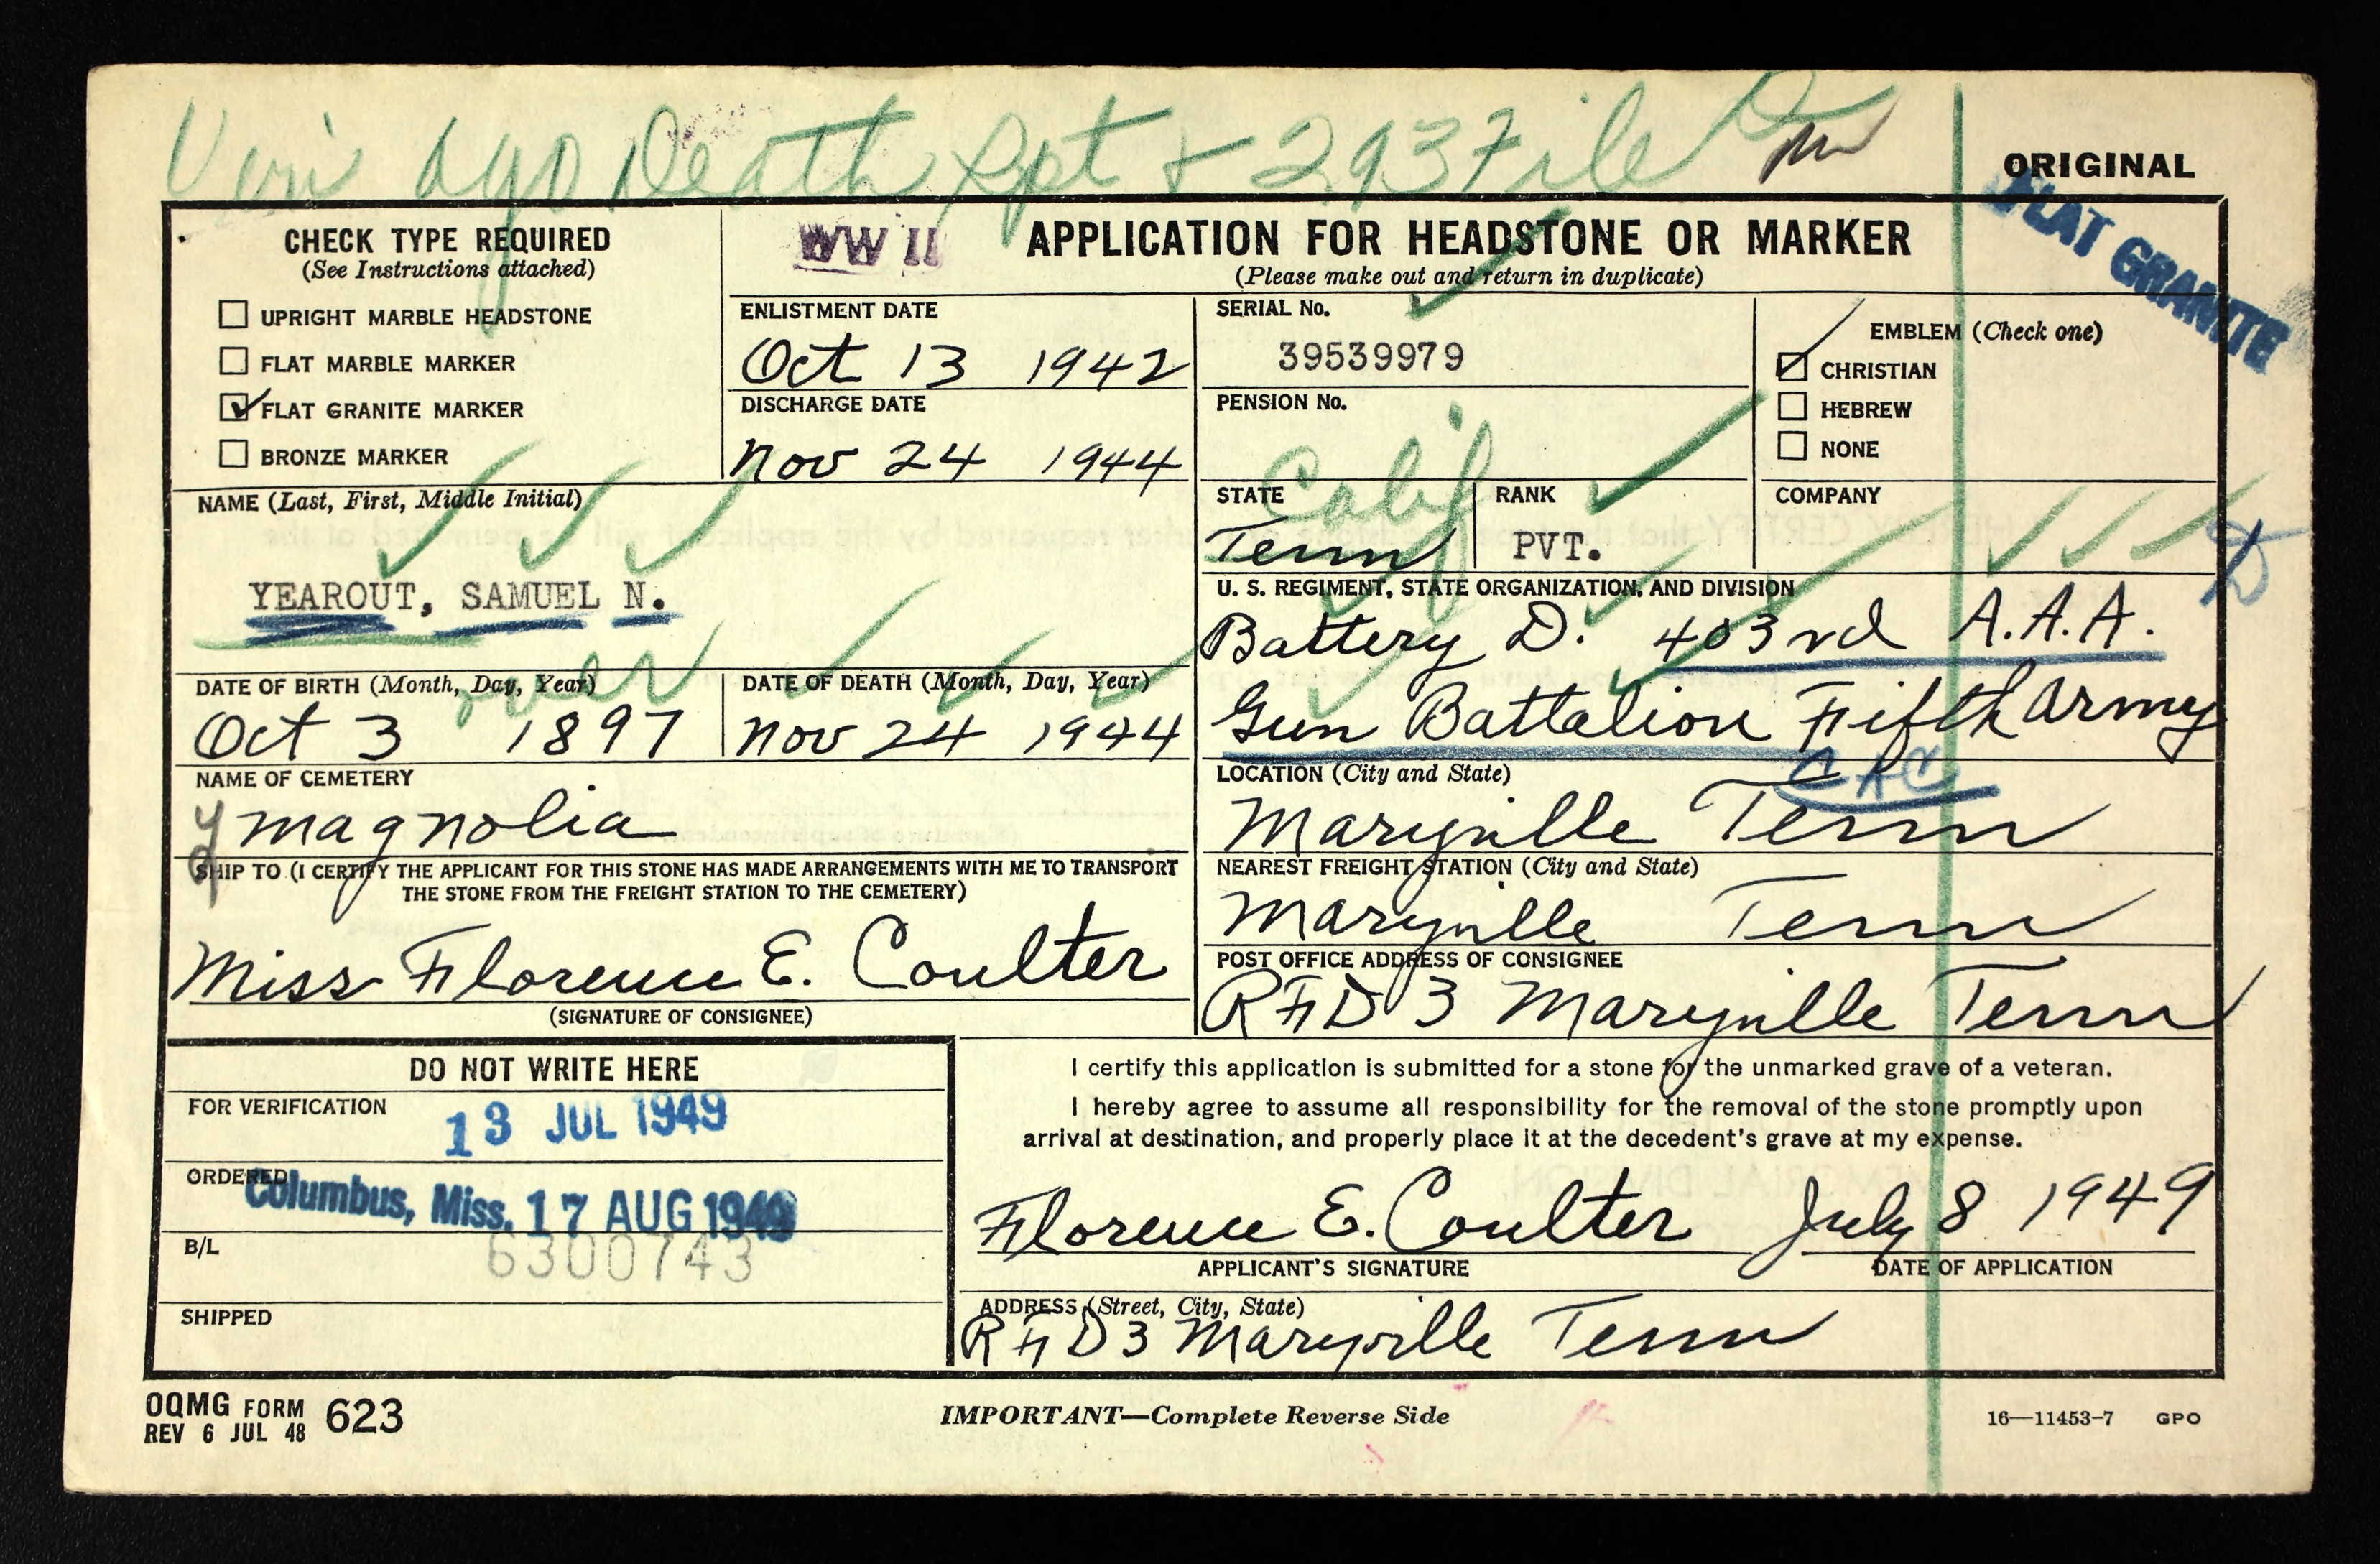 Veri AGO Death Rpt + 293 File
ORIGINAL
FLAT GRANITE
CHECK TYPE REQUIRED
(See Instructions attached)
UPRIGHT MARBLE HEADSTONE
FLAT MARBLE MARKER
FLAT GRANITE MARKER
BRONZE MARKER
WW II
APPLICATION FOR HEADSTONE OR MARKER
(Please make out and return in duplicate)
ENLISTMENT DATE
Oct 13 1942
DISCHARGE DATE
Nov 24 1944
SERIAL No.
39539979
PENSION No.
EMBLEM (Check one)
CHRISTIAN
HEBREW
NONE
NAME (Last, First, Middle Initial)
YEAROUT, SAMUEL N.
Calif
STATE
Tenn
RANK
PVT.
COMPANY
D
U. S. REGIMENT, STATE ORGANIZATION, AND DIVISION
Battery D. 403rd A.A.A.
Gun Battalion Fifth Army
CAC
DATE OF BIRTH (Month, Day, Year)
Oct 3 1897
DATE OF DEATH (Month, Day, Year)
Nov 24 1944
NAME OF CEMETERY
Magnolia
LOCATION (City and State)
Maryville Tenn
SHIP TO (I CERTIFY THE APPLICANT FOR THIS STONE HAS MADE ARRANGEMENTS WITH ME TO TRANSPORT
THE STONE FROM THE FREIGHT STATION TO THE CEMETERY)
Miss Florence E. Coulter
(SIGNATURE OF CONSIGNEE)
NEAREST FREIGHT STATION (City and State)
Maryville Tenn
POST OFFICE ADDRESS OF CONSIGNEE
RFD 3 Maryville Tenn
DO NOT WRITE HERE
FOR VERIFICATION
13 JUL 1949
ORDERED
Columbus, Miss. 17 AUG 1949
B/L
6300743
SHIPPED
I certify this application is submitted for a stone for the unmarked grave of a veteran.
I hereby agree to assume all responsibility for the removal of the stone promptly upon
arrival at destination, and properly place it at the decedent's grave at my expense.
Florence E. Coulter July 8 1949
APPLICANT'S SIGNATURE
DATE OF APPLICATION
ADDRESS (Street, City, State)
RFD 3 Maryville Tenn
OQMG FORM 623
REV 6 JUL 48
IMPORTANT—Complete Reverse Side
16—11453-7 GPO